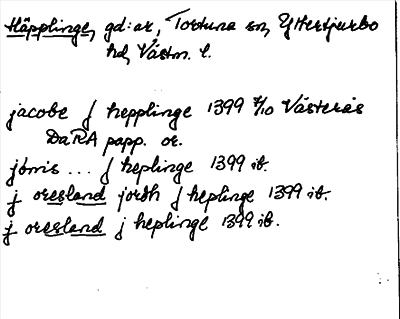 Häpplinge, gd:ar, Tortuna sn, Yttertjurbo
hd, Västm. l.
jacobe j hepplinge 1399 7/10 Västerås
DaRA papp. or.
jönis ... j heplinge 1399 ib.
j oresland jordh j heplinge 1399 ib.
j oresland j heplinge 1399 ib.